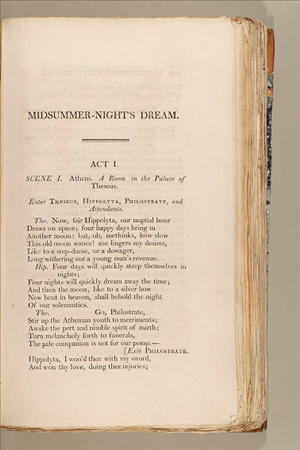 MIDSUMMER-NIGHT'S DREAM.
ACT I.
SCENE I. Athens. A Room in the Palace of
Theseus.
Enter THESEUS, HIPPOLYTA, PHILOSTRATE, and
Attendants.
The. Now, fair Hippolyta, our nuptial hour
Draws on apace; four happy days bring in
Another moon: but, oh, methinks, how slow
This old moon wanes! she lingers my desires,
Like to a step-dame, or a dowager,
Long withering out a young man's revenue.
Hip. Four days will quickly steep themselves in
nights;
Four nights will quickly dream away the time;
And then the moon, like to a silver bow
New bent in heaven, shall behold the night
Of our solemnities.
The. Go, Philostrate,
Stir up the Athenian youth to merriments;
Awake the pert and nimble spirit of mirth;
Turn melancholy forth to funerals,
The pale companion is not for our pomp.—
[Exit PHILOSTRATE.
Hippolyta, I woo'd thee with my sword,
And won thy love, doing thee injuries;